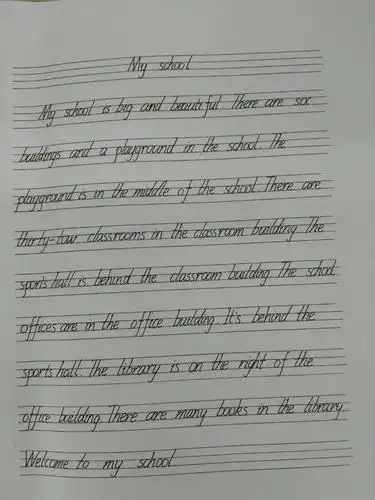 My school
My school is big and beautiful. There are six
buildings and a playground in the school. The
playground is in the middle of the school. There are
thirty-tow classrooms in the classroom building. The
sports hall is behind the classroom building. The school
offices are in the office building. It's behind the
sports hall. The library is on the right of the
office building. There are many books in the library.
Welcome to my school.